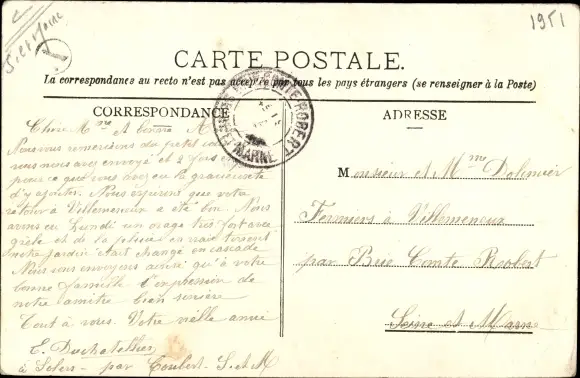 S. et Marne
1951
CARTE POSTALE.
La correspondance au recto n'est pas acceptée par tous les pays étrangers (se renseigner à la Poste)
CORRESPONDANCE
ADRESSE
COMTE ROBERT
MARNE
Chère Mme
Nous vous remercions du petit
vous nous avez envoyé et 2 fois
pour ce que vous avez eu la gracieuseté
d'y ajouter. Nous espérons que votre
retour à Villemeneux a été bon. Nous
avons eu Lundi un orage très fort avec
grêle et de la pluie en vrai torrent
notre jardin était changé en cascade
Nous vous envoyons ainsi qu'à votre
bonne famille l'expression de
notre amitié bien sincère
Tout à vous. Votre vieille amie
E. Duchatellier
à Solers - par Coubert - S. et M
Monsieur et Mme Dolimier
Fermiers à Villemeneux
par Brie Comte Robert
Seine et Marne